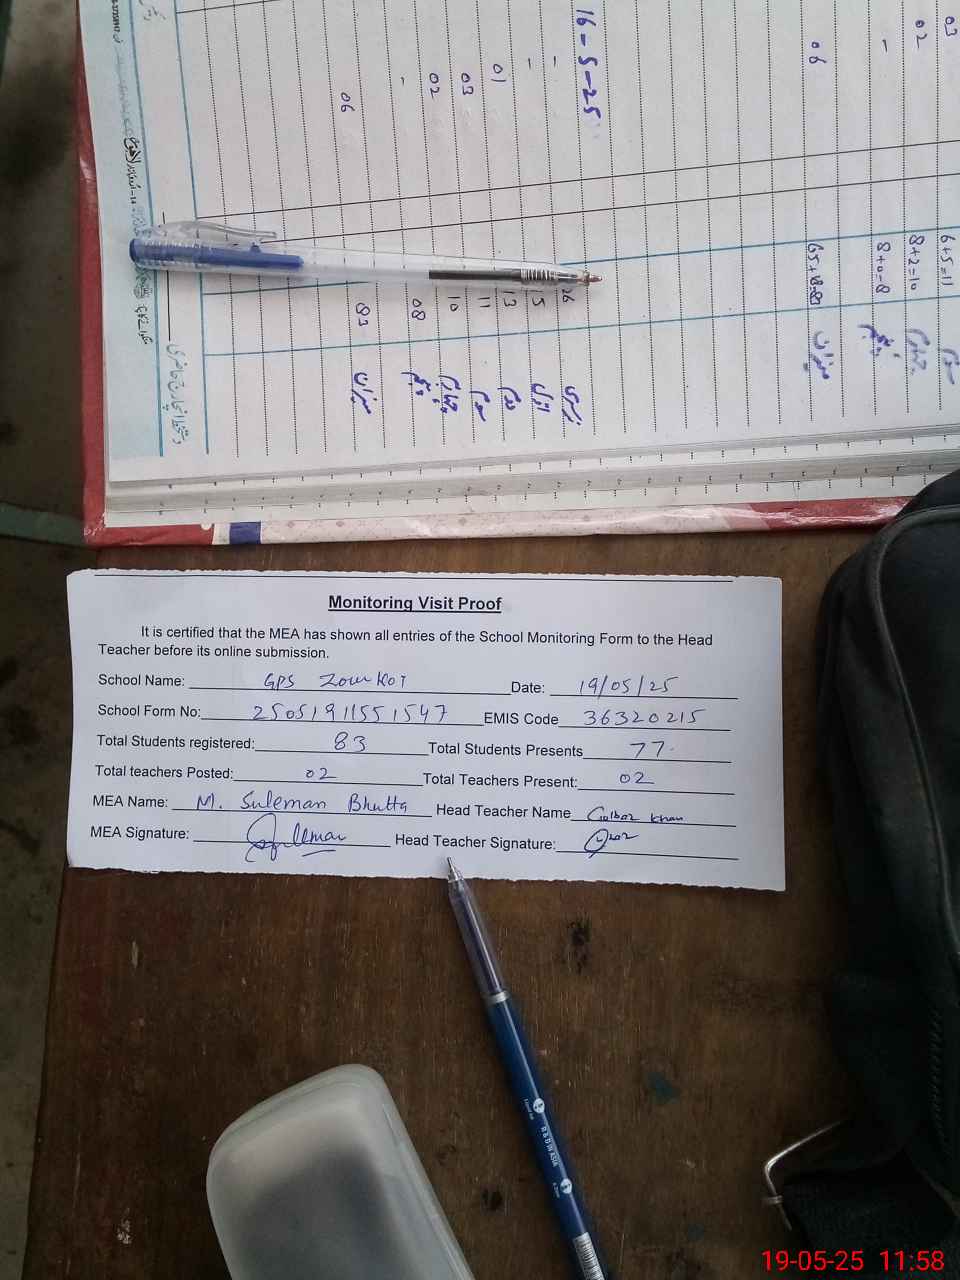 16-5-25
03
02
-
06
-
-
01
03
02
-
06
6+5=11
8+2=10
8+0=8
65+18=83
میزان
26
5
13
11
10
08
83
نرسری
اول
دوم
سوم
چہارم
پنجم
میزان
Monitoring Visit Proof
It is certified that the MEA has shown all entries of the School Monitoring Form to the Head
Teacher before its online submission.
School Name: GPS Zour Kot Date: 19/05/25
School Form No: 25051911551547 EMIS Code 36320215
Total Students registered: 83 Total Students Presents 77
Total teachers Posted: 02 Total Teachers Present: 02
MEA Name: M. Suleman Bhutta Head Teacher Name Gulbaz Khan
MEA Signature: Suleman Head Teacher Signature:
R & D IN ASIA
19-05-25 11:58